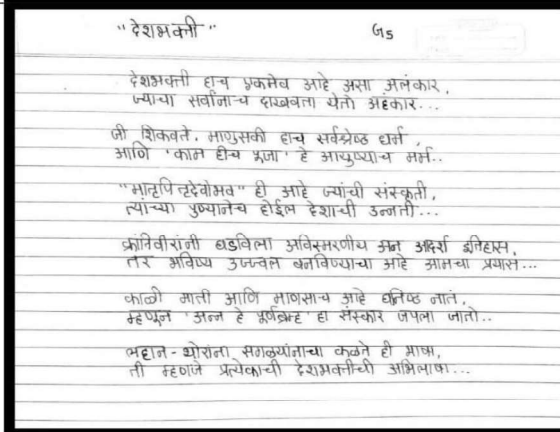 "देशभक्ती" G5
देशभक्ती हाच एकमेव आहे असा अलंकार,
ज्याचा सर्वांनाच दाखवता येतो अहंकार...
जी शिकवते. माणुसकी हाच सर्वश्रेष्ठ धर्म,
आणि 'काम हीच पूजा' हे आयुष्याच मर्म..
"मातृपितृदेवोभव" ही आहे ज्यांची संस्कृती,
त्यांच्या पुण्यानेच होईल देशाची उन्नती...
क्रांतिवीरांनी घडविला अविस्मरणीय अन आदर्श इतिहास,
तर भविष्य उज्ज्वल बनविण्याचा आहे आमचा प्रयास...
काळी माती आणि माणसाच आहे घनिष्ठ नातं,
म्हणून 'अन्न हे पूर्णब्रम्ह' हा संस्कार जपला जातो..
महान-थोरांना सगळ्यांनाचा कळते ही भाषा,
ती म्हणजे प्रत्येकाची देशभक्तीची अभिलाषा...